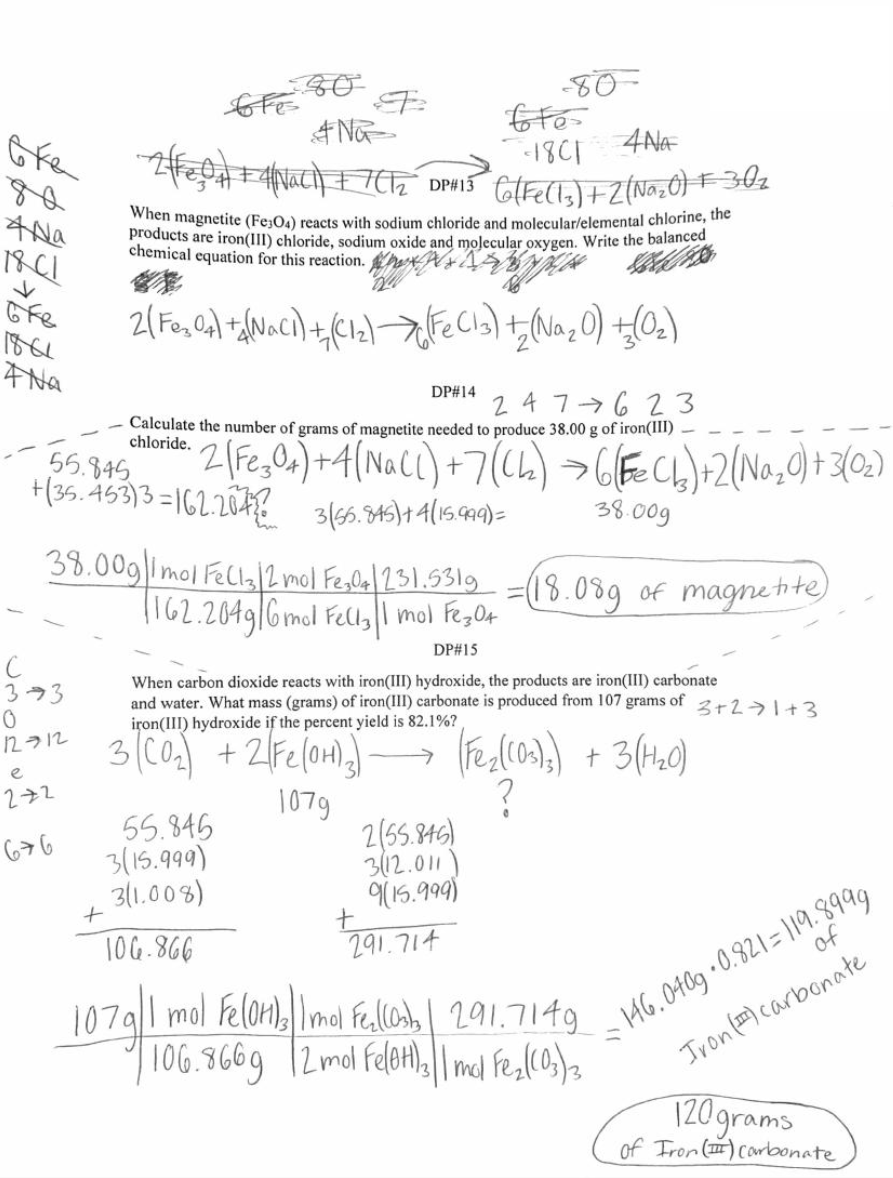 8O 8O
6Fe 7 6Fe
4Na 18Cl 4Na
2(Fe₃O₄) + 4(NaCl) + 7Cl₂ → 6(FeCl₃) + 2(Na₂O) + 3O₂
DP#13
6Fe
8O
4Na
18Cl
↓
6Fe
18Cl
4Na
When magnetite (Fe₃O₄) reacts with sodium chloride and molecular/elemental chlorine, the
products are iron(III) chloride, sodium oxide and molecular oxygen. Write the balanced
chemical equation for this reaction.
2(Fe₃O₄) + 4(NaCl) + 7(Cl₂) → 6(FeCl₃) + 2(Na₂O) + 3(O₂)
DP#14
2 4 7 → 6 2 3
Calculate the number of grams of magnetite needed to produce 38.00 g of iron(III)
chloride.
2(Fe₃O₄) + 4(NaCl) + 7(Cl₂) → 6(FeCl₃) + 2(Na₂O) + 3(O₂)
55.845
+(35.453)3 = 162.204
3(55.845)+4(15.999)=
38.00g
38.00g | 1 mol FeCl₃ | 2 mol Fe₃O₄ | 231.531g = 18.08g of magnetite
162.204g | 6 mol FeCl₃ | 1 mol Fe₃O₄
DP#15
When carbon dioxide reacts with iron(III) hydroxide, the products are iron(III) carbonate
and water. What mass (grams) of iron(III) carbonate is produced from 107 grams of
iron(III) hydroxide if the percent yield is 82.1%?
3+2→1+3
C
3→3
O
12→12
e
2→2
6→6
3(CO₂) + 2(Fe(OH)₃) → (Fe₂(CO₃)₃) + 3(H₂O)
107g ?
55.845
3(15.999)
+ 3(1.008)
106.866
2(55.845)
3(12.011)
+ 9(15.999)
291.714
107g | 1 mol Fe(OH)₃ | 1 mol Fe₂(CO₃)₃ | 291.714g
106.866g | 2 mol Fe(OH)₃ | 1 mol Fe₂(CO₃)₃
= 146.040g · 0.821 = 119.899g
of
Iron(III) carbonate
120 grams
of Iron(III) carbonate